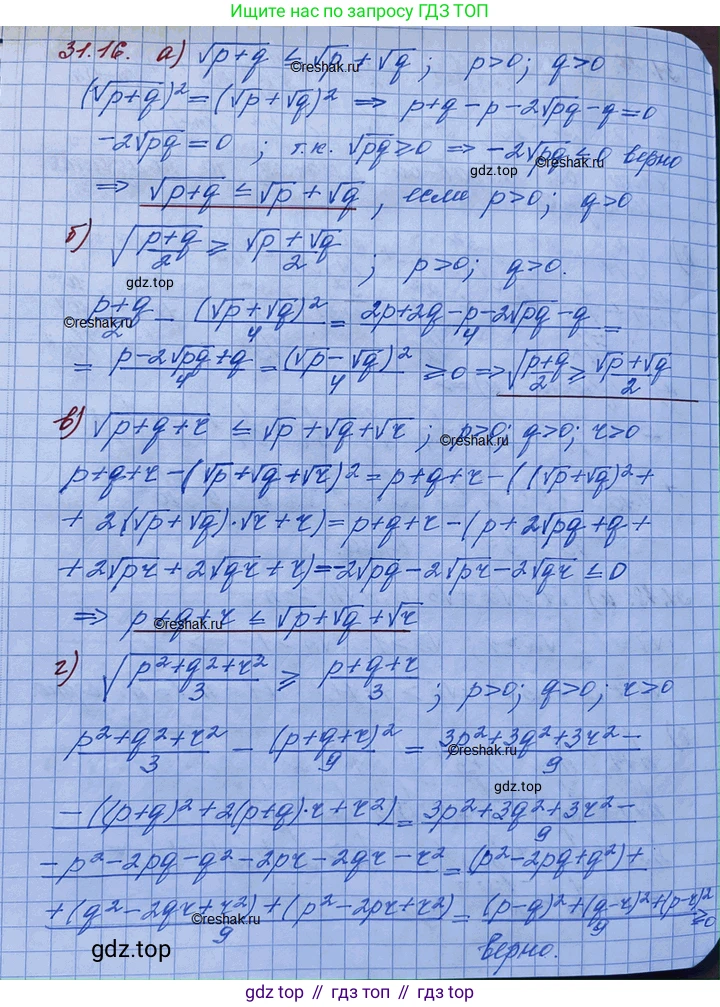 Ищите нас по запросу ГДЗ ТОП
31.16. а) √(p+q) ≤ √p + √q ; p>0; q>0
©reshak.ru
(√(p+q))² = (√p + √q)² ⇒ p+q-p-2√(pq)-q=0
-2√(pq) = 0 ; т.к. √(pq) ≥ 0 ⇒ -2√(pq) ≤ 0 верно
©reshak.ru
gdz.top
⇒ √(p+q) ≤ √p + √q , если p>0; q>0
б) √((p+q)/2) ≥ (√p+√q)/2 ; p>0; q>0.
gdz.top
(p+q)/2 - (√p+√q)²/4 = (2p+2q-p-2√(pq)-q)/4 =
©reshak.ru
= (p-2√(pq)+q)/4 = (√p-√q)²/4 ≥ 0 ⇒ √((p+q)/2) ≥ (√p+√q)/2
в) √(p+q+r) ≤ √p+√q+√r ; p>0; q>0; r>0
©reshak.ru
p+q+r-(√p+√q+√r)² = p+q+r-((√p+√q)²+
+ 2(√p+√q)·√r+r) = p+q+r-(p+2√(pq)+q+
+ 2√(pr)+2√(qr)+r) = -2√(pq)-2√(pr)-2√(qr) ≤ 0
⇒ p+q+r ≤ √p+√q+√r
©reshak.ru
г) √((p²+q²+r²)/3) ≥ (p+q+r)/3 ; p>0; q>0; r>0
(p²+q²+r²)/3 - (p+q+r)²/9 = (3p²+3q²+3r²-)/9
©reshak.ru
gdz.top
-((p+q)²+2(p+q)·r+r²) = (3p²+3q²+3r²-)/9
-p²-2pq-q²-2pr-2qr-r² = (p²-2pq+q²)+
+(q²-2qr+r²)+(p²-2pr+r²)/9 = ((p-q)²+(q-r)²+(p-r)²)/9 ≥0
©reshak.ru
gdz.top
верно.
gdz.top // гдз.топ // gdz.top // гдз.топ